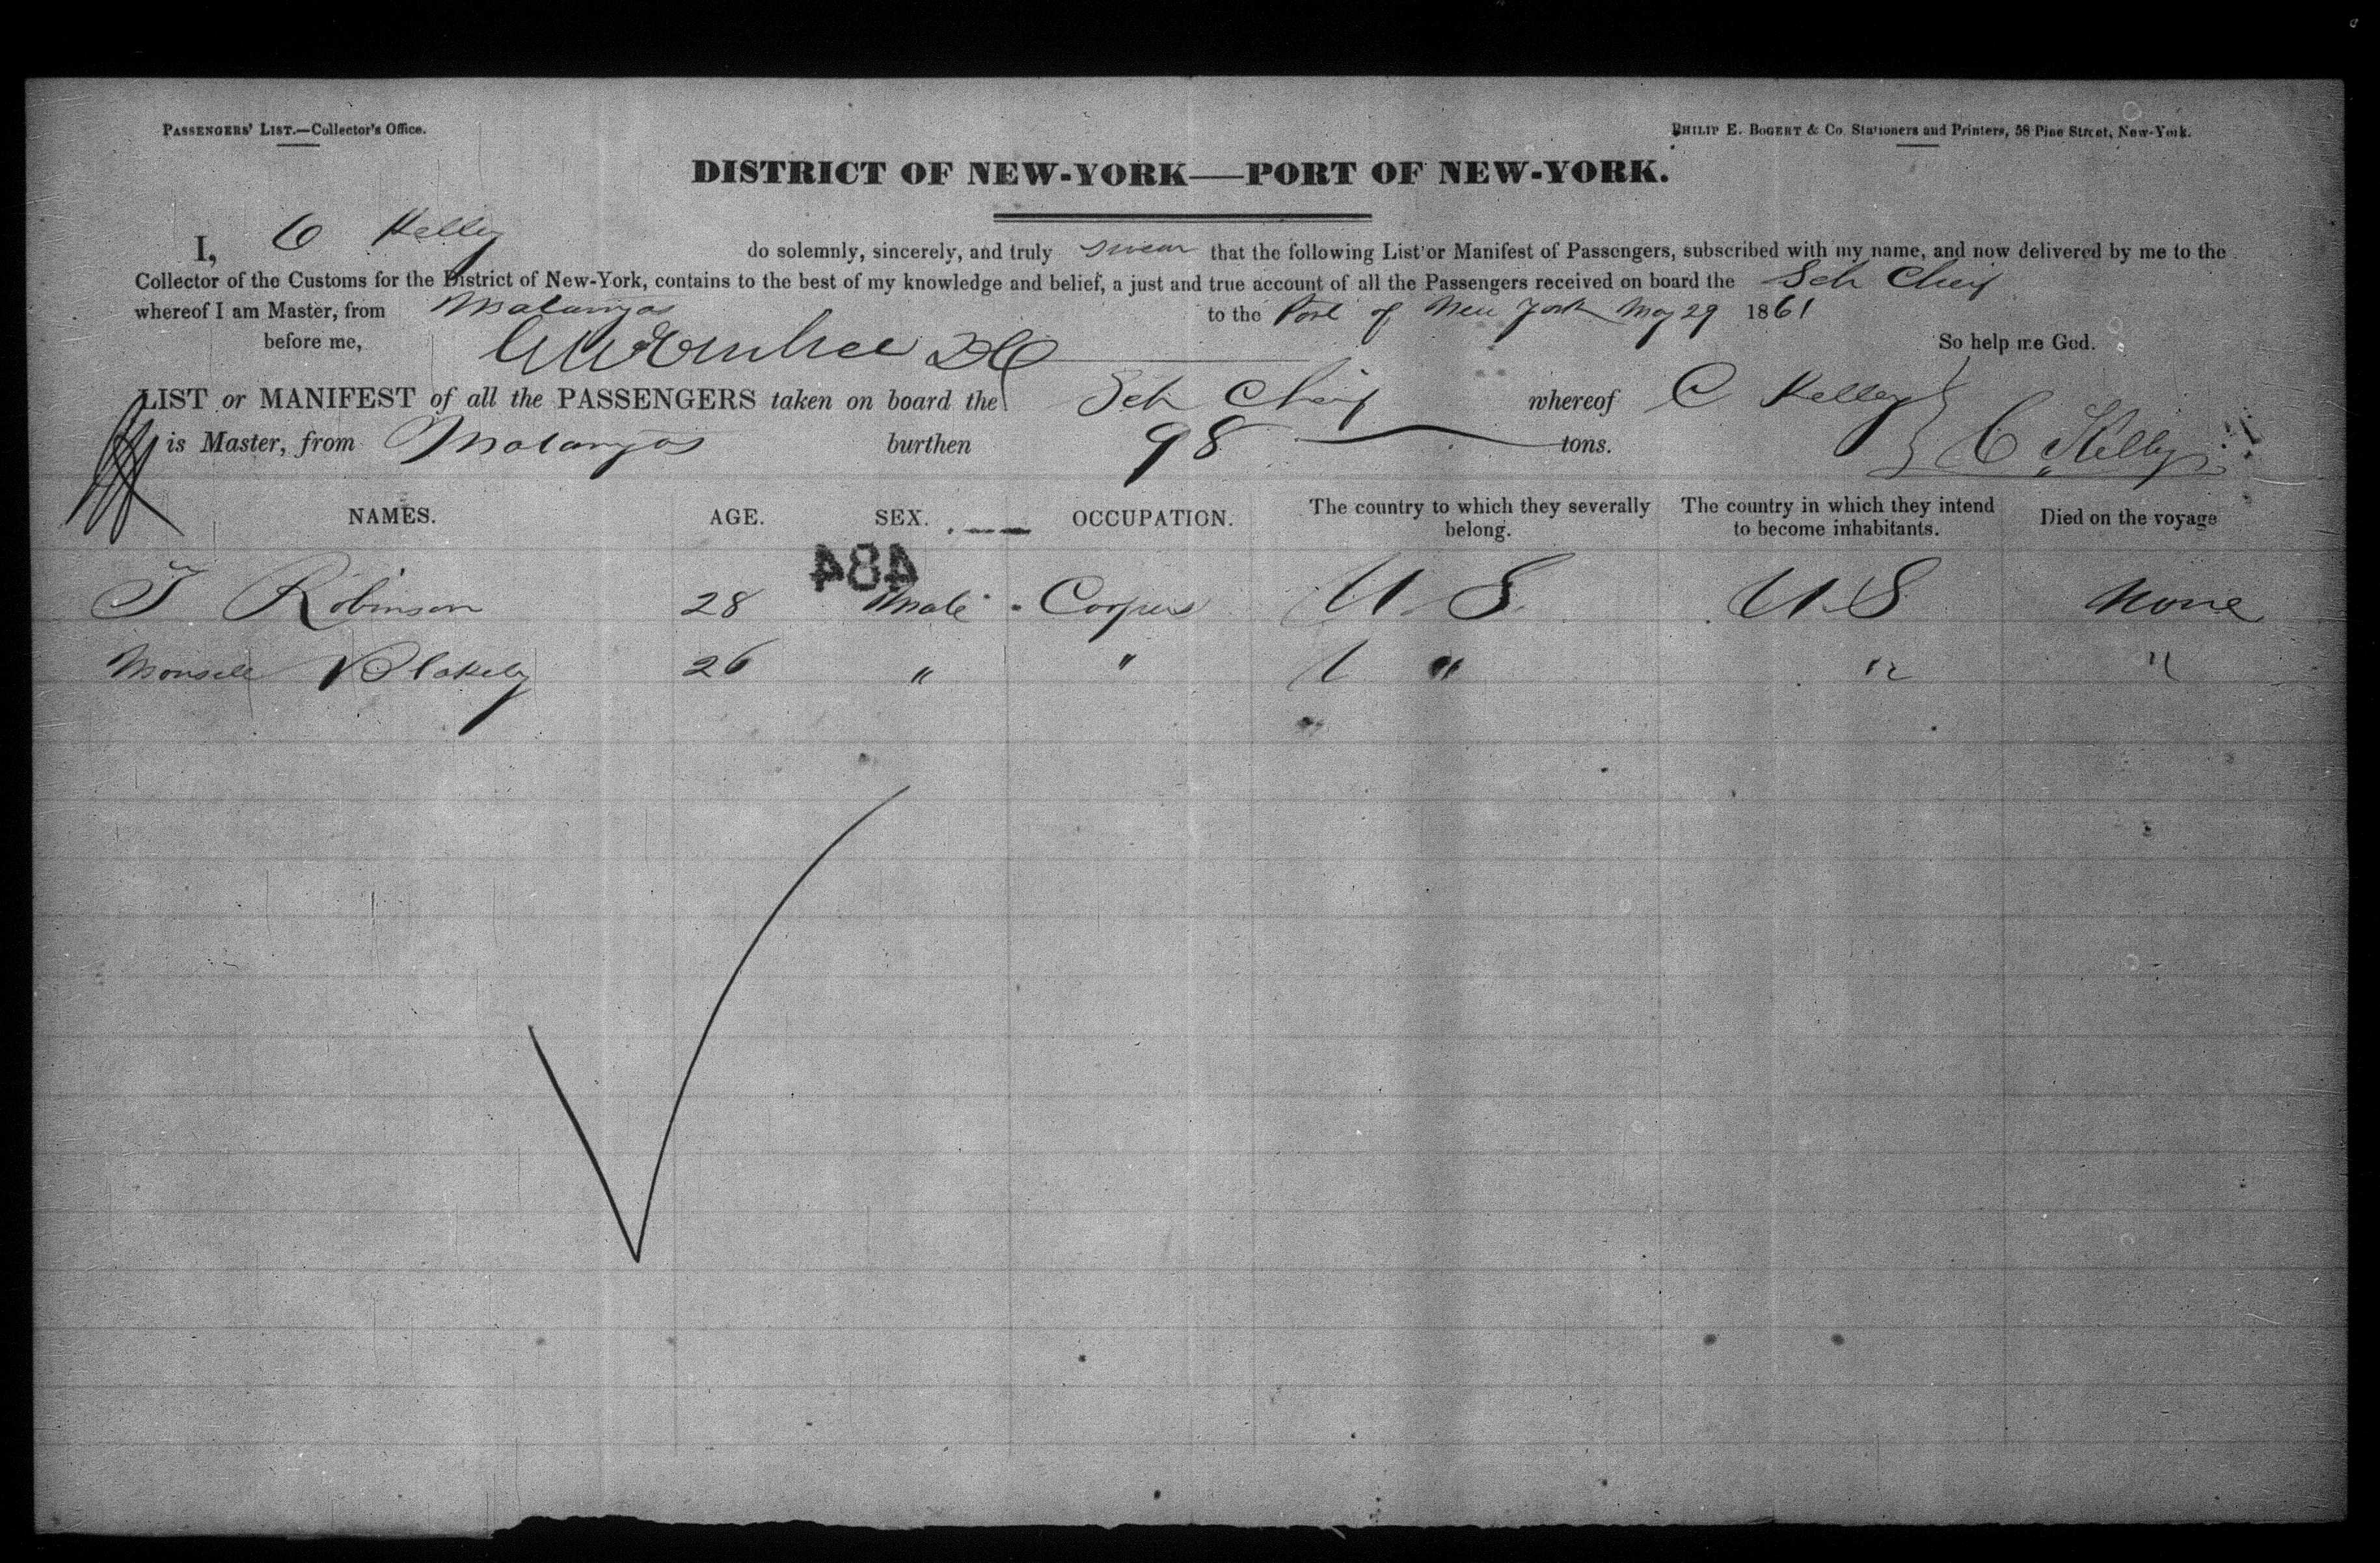 PASSENGERS' LIST.—Collector's Office.
PHILIP E. BOGERT & Co. Stationers and Printers, 58 Pine Street, New-York.
DISTRICT OF NEW-YORK—PORT OF NEW-YORK.
I, C Kelley do solemnly, sincerely, and truly swear that the following List or Manifest of Passengers, subscribed with my name, and now delivered by me to the
Collector of the Customs for the District of New-York, contains to the best of my knowledge and belief, a just and true account of all the Passengers received on board the Sch Chief
whereof I am Master, from Matanzas to the Port of New York May 29 1861
before me, So help me God.
LIST or MANIFEST of all the PASSENGERS taken on board the Sch Chief whereof C Kelley
is Master, from Matanzas burthen 98 tons. C. Kelley
NAMES. AGE. SEX. OCCUPATION. The country to which they severally belong. The country in which they intend to become inhabitants. Died on the voyage
484
J Robinson 28 Male U S U S None
Blakely 26 " " " " "